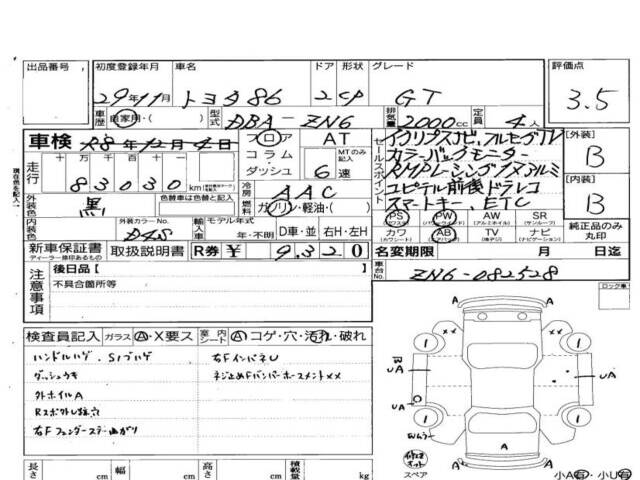 出品番号 初度登録年月 車名 ドア 形状 グレード 評価点
29年11月 トヨタ86 2 CP GT 3.5
車歴 自家用・( ) 型式 DBA-ZN6 排気量 2000cc 定員 4人
車検 年12月 日 フロア AT セールスポイント イクリプスナビ、フルセグTV [外装]
コラム MTのみ記入 カラーバックモニター B
走行 十万千百十 ダッシュ 6速 RAMPレーシングアルミ
83030km 冷房 AAC ユピテル前後ドラレコ [内装]
外装色 黒 色替車は色替と記入 燃料 ガソリン・軽油・( ) スマートキー、ETC B
PS PW AW SR
(パワステ) (パワーウィンドウ) (アルミホイル) (サンルーフ)
内装色 外装カラーNo. D4S 輸入車 モデル年式 年・不明 D車・並 右H・左H カワ AB TV ナビ 純正品のみ丸印
(カワシート) (エアバッグ) (地デジ) (ナビゲーション)
新車保証書 取扱説明書 R券 ¥ 9320 名変期限 月 日迄
ディーラー捺印あるもの
車台No. ZN6-082528
注意事項 後日品[ ]
不具合箇所等
ロック車
検査員記入 ガラス A・X要ス 室内シート A コゲ・穴・汚れ・破れ
ハンドルハゲ、S/Wハゲ 右FインパネU
ダッシュウキ ネジ止めFバンパーホースメントXX
外ホイルA
右Fフェンダーステー曲がり
A
A
XX XX
1 1
W
UA UA
UA
1 1
Wムラ
A
スペア A
長さ cm 幅 cm 高さ cm 積載量 kg 小A有・小U有